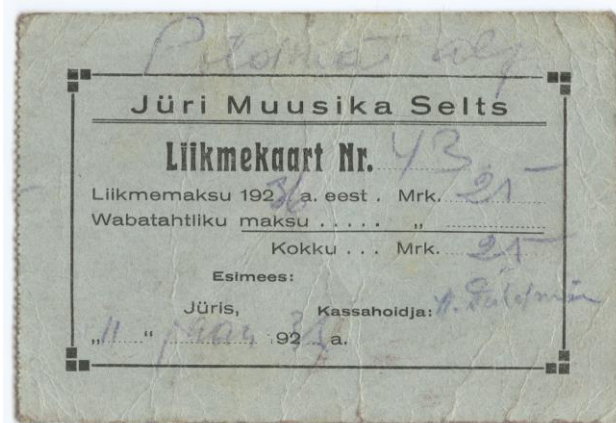 Jüri Muusika Selts
Liikmekaart Nr. 43
Liikmemaksu 192 36 a. eest . Mrk. 25
Wabatahtliku maksu . . . . . „
Kokku . . . Mrk. 25
Esimees:
Jüris, Kassahoidja:
„11“ 192 a.